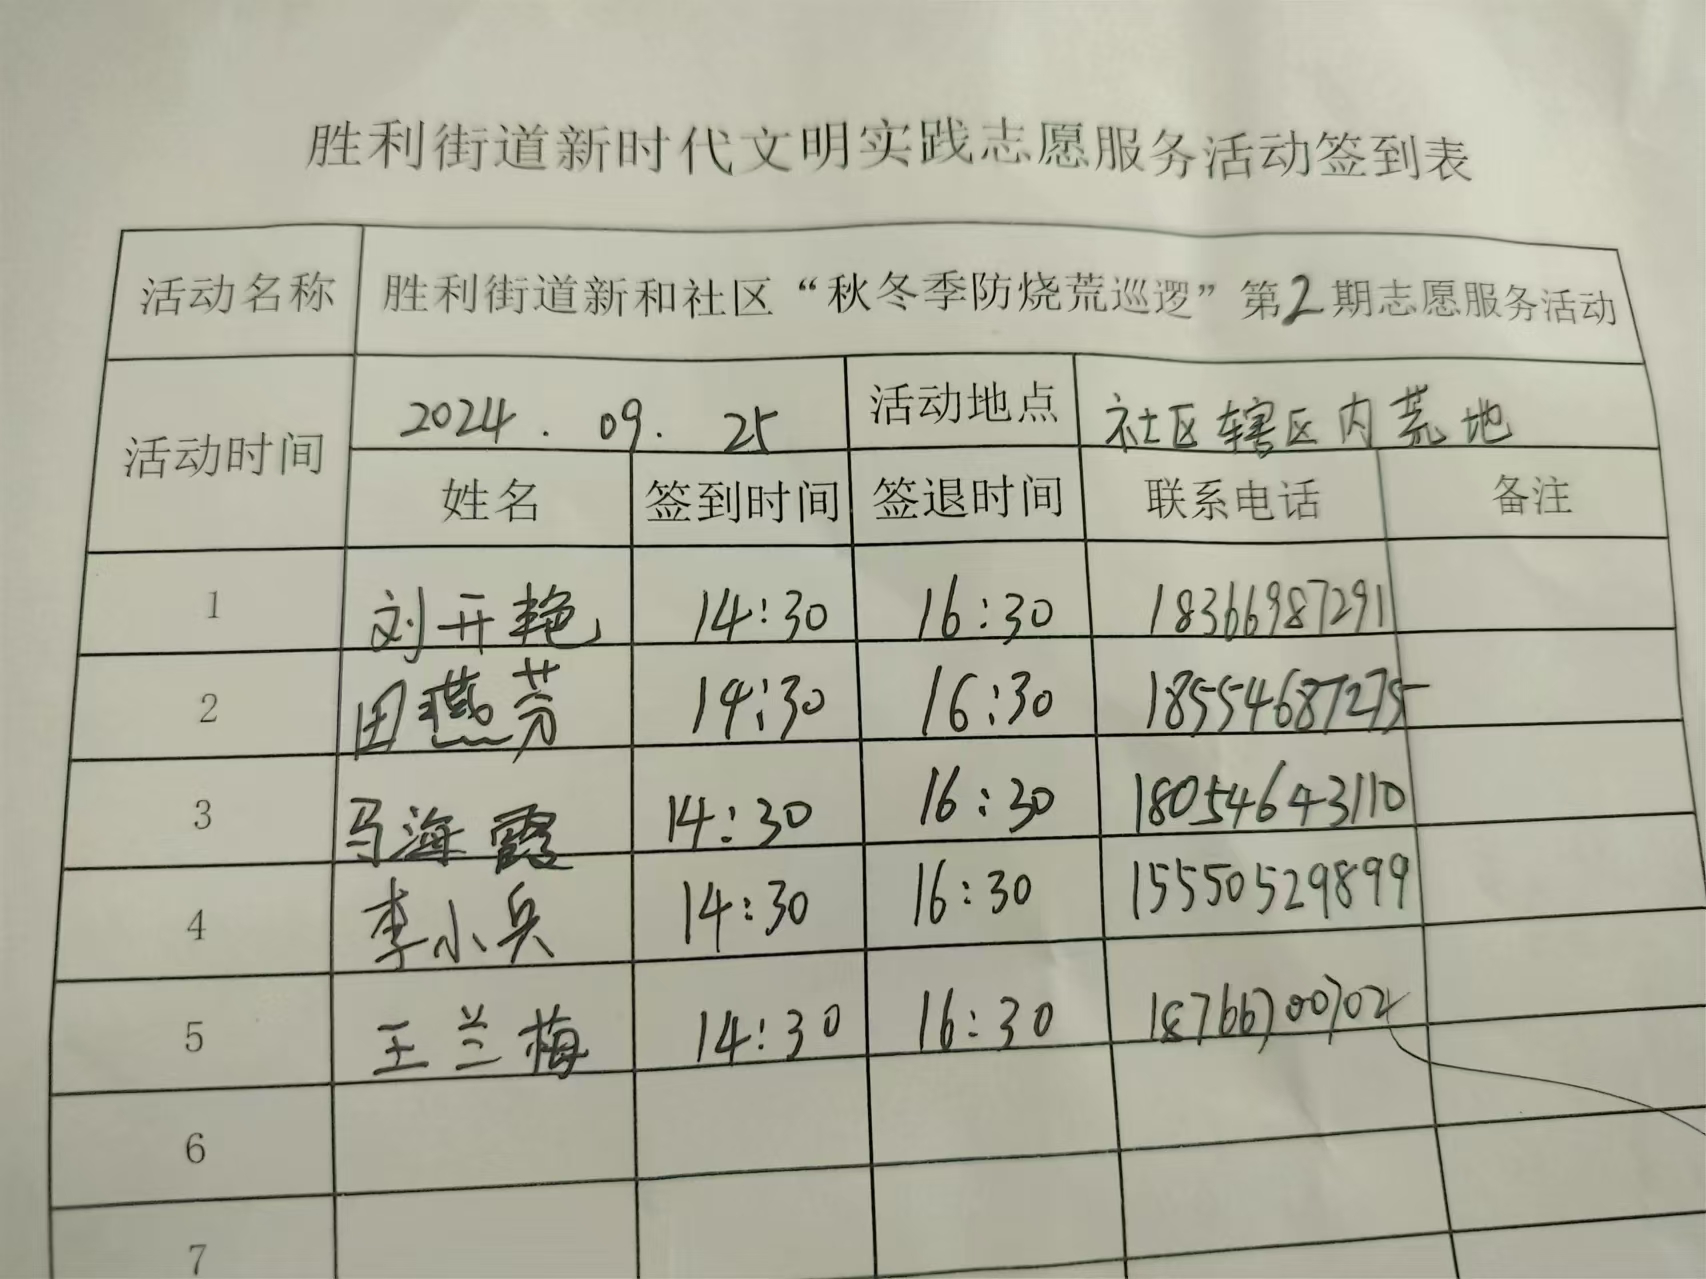 胜利街道新时代文明实践志愿服务活动签到表
活动名称 胜利街道新和社区“秋冬季防烧荒巡逻”第2期志愿服务活动
活动时间 2024.09.25 活动地点 社区辖区内荒地
姓名 签到时间 签退时间 联系电话 备注
1 刘开艳 14:30 16:30 18366987291
2 田燕芬 14:30 16:30 18554687275
3 马海霞 14:30 16:30 18054643110
4 李小兵 14:30 16:30 15550529899
5 王兰梅 14:30 16:30 18766700702
6
7